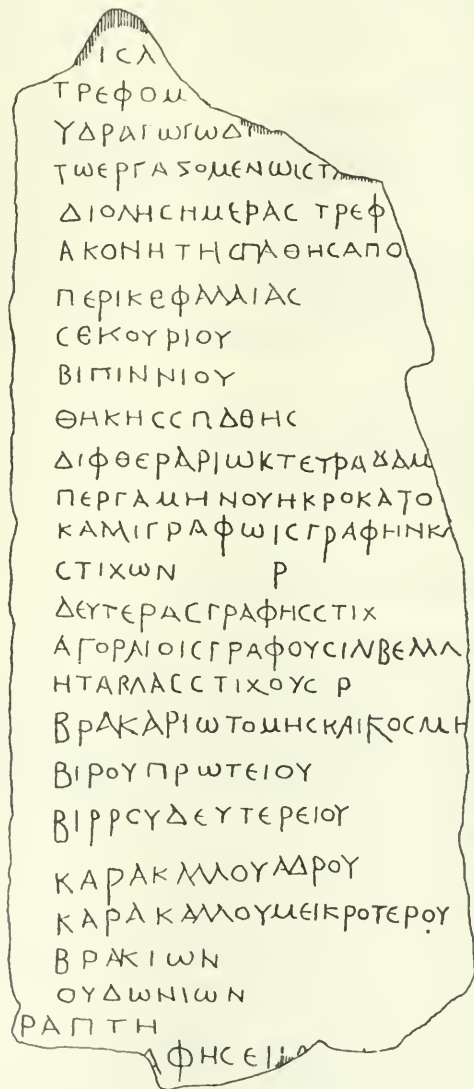 ΙϹΛ
ΤΡΕΦΟΜ
ΥΔΡΑΓΩΓΩΔΙ
ΤΩΕΡΓΑΖΟΜΕΝΩΙϹΤ
ΔΙΟΛΗϹΗΜΕΡΑϹ ΤΡΕΦ
ΑΚΟΝΗΤΗϹΠΑΘΗϹΑΠΟ
ΠΕΡΙΚΕΦΑΛΑΙΑϹ
ϹΕΚΟΥΡΙΟΥ
ΒΙΠΙΝΝΙΟΥ
ΘΗΚΗϹϹΠΑΘΗϹ
ΔΙΦΘΕΡΑΡΙΩΚΤΕΥΡΑΔΑΜ
ΠΕΡΓΑΜΗΝΟΥΗΚΡΟΚΑΤΟ
ΚΑΜΙΓΡΑΦΩΙϹΓΡΑΦΗΝΚΑ
ϹΤΙΧΩΝ Ρ
ΔΕΥΤΕΡΑϹΓΡΑΦΗϹϹΤΙΧ
ΑΓΟΡΑΙΟΙϹΓΡΑΦΟΥϹΙΛΒΕΛΛ
ΗΤΑΒΛΑϹϹΤΙΧΟΥϹ Ρ
ΒΡΑΚΑΡΙΩΤΟΜΗϹΚΑΙΚΟϹΜΗ
ΒΙΡΟΥΠΡΩΤΕΙΟΥ
ΒΙΡΡϹΥΔΕΥΤΕΡΕΙΟΥ
ΚΑΡΑΚΑΛΛΟΥΑΔΡΟΥ
ΚΑΡΑΚΑΛΛΟΥΜΕΙΚΡΟΤΕΡΟΥ
ΒΡΑΚΙΩΝ
ΟΥΔΩΝΙΩΝ
ΡΑΠΤΗ
ΑΦΗϹΕΙ